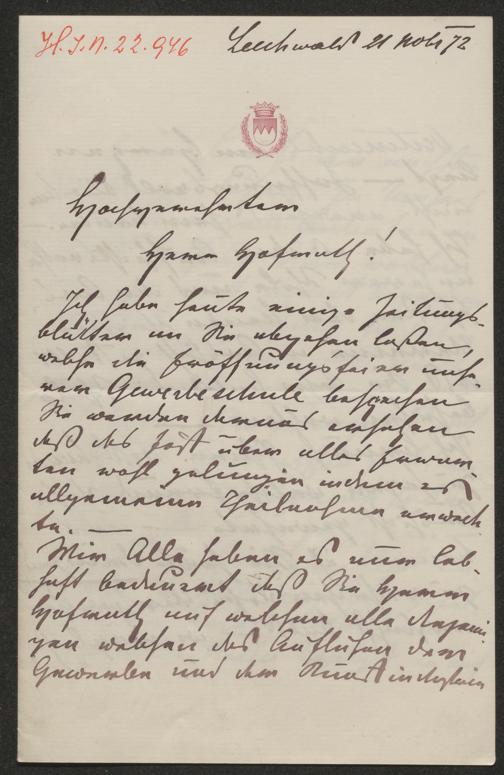 H.I.N. 22.946
Lechwald 21 Nob 72
Hochgeehrtem
Herrn Hofrath!
Ich habe heute einige Zeitungs-
blätter an Sie abgehen laßen,
welche die Eröffnungsfeier unse-
rer Gewerbeschule besprechen
Sie werden daraus ersehen
daß das Fest über alles Erwar-
ten wohl gelungen indem es
allgemeine Theilnahme erweck-
te. —
Wir Alle haben es nur leb-
haft bedauert daß Sie Herrn
Hofrath auf welchen alle
welchen das Aufblühen der
Gewerbe und der Kunst